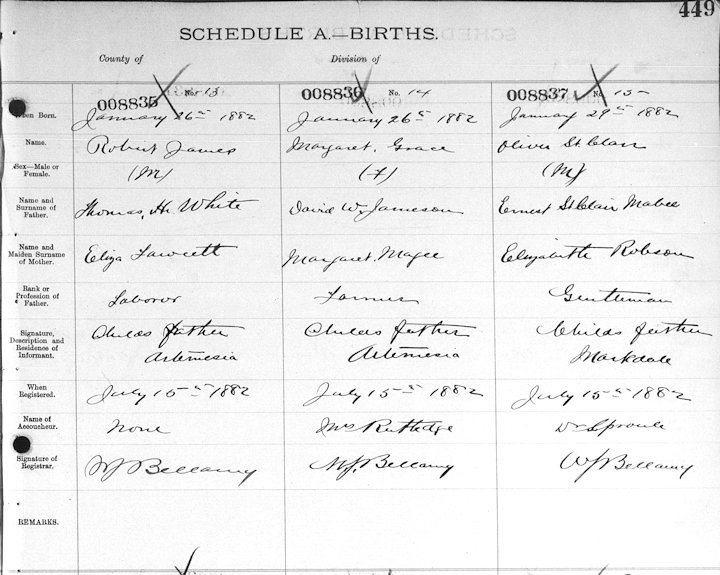 449
SCHEDULE A.—BIRTHS.
County of Division of
008835 No. 13 008836 No. 14 008837 No. 15
When Born. January 26th 1882 January 26th 1882 January 29th 1882
Name. Robert James Margaret, Grace Oliver St Clair
Sex—Male or Female. (M) (F) (M)
Name and Surname of Father. Thomas, H. White David W. Jameson Ernest St Clair Mabee
Name and Maiden Surname of Mother. Eliza Fawcett Margaret. Magee Elizabeth Robson
Rank or Profession of Father. Laboror Farmer Gentleman
Signature, Description and Residence of Informant. Childs father Artemesia Childs father Artemesia Childs father Markdale
When Registered. July 15th 1882 July 15th 1882 July 15th 1882
Name of Accoucheur. None Mrs Rutledge Dr Sproule
Signature of Registrar. WJ Bellamy WJ. Bellamy WJ Bellamy
REMARKS.